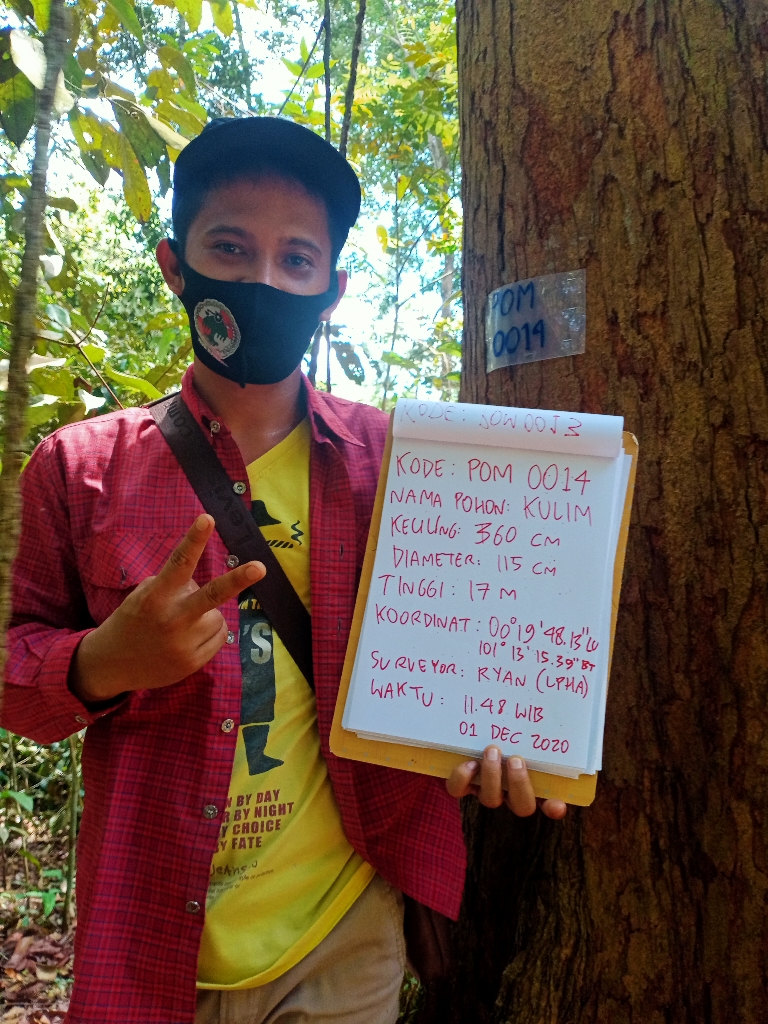 POM
0014
KODE: SOW 0013
KODE: POM 0014
NAMA POHON: KULIM
KELILING: 360 CM
DIAMETER: 115 CM
TINGGI: 17 M
KOORDINAT: 00°19'48.13"LU
101°13'15.39"BT
SURVEYOR: RYAN (LPHA)
WAKTU: 11.48 WIB
01 DEC 2020
LEVI'S
'S
N BY DAY
R BY NIGHT
Y CHOICE
BY FATE
Jeans